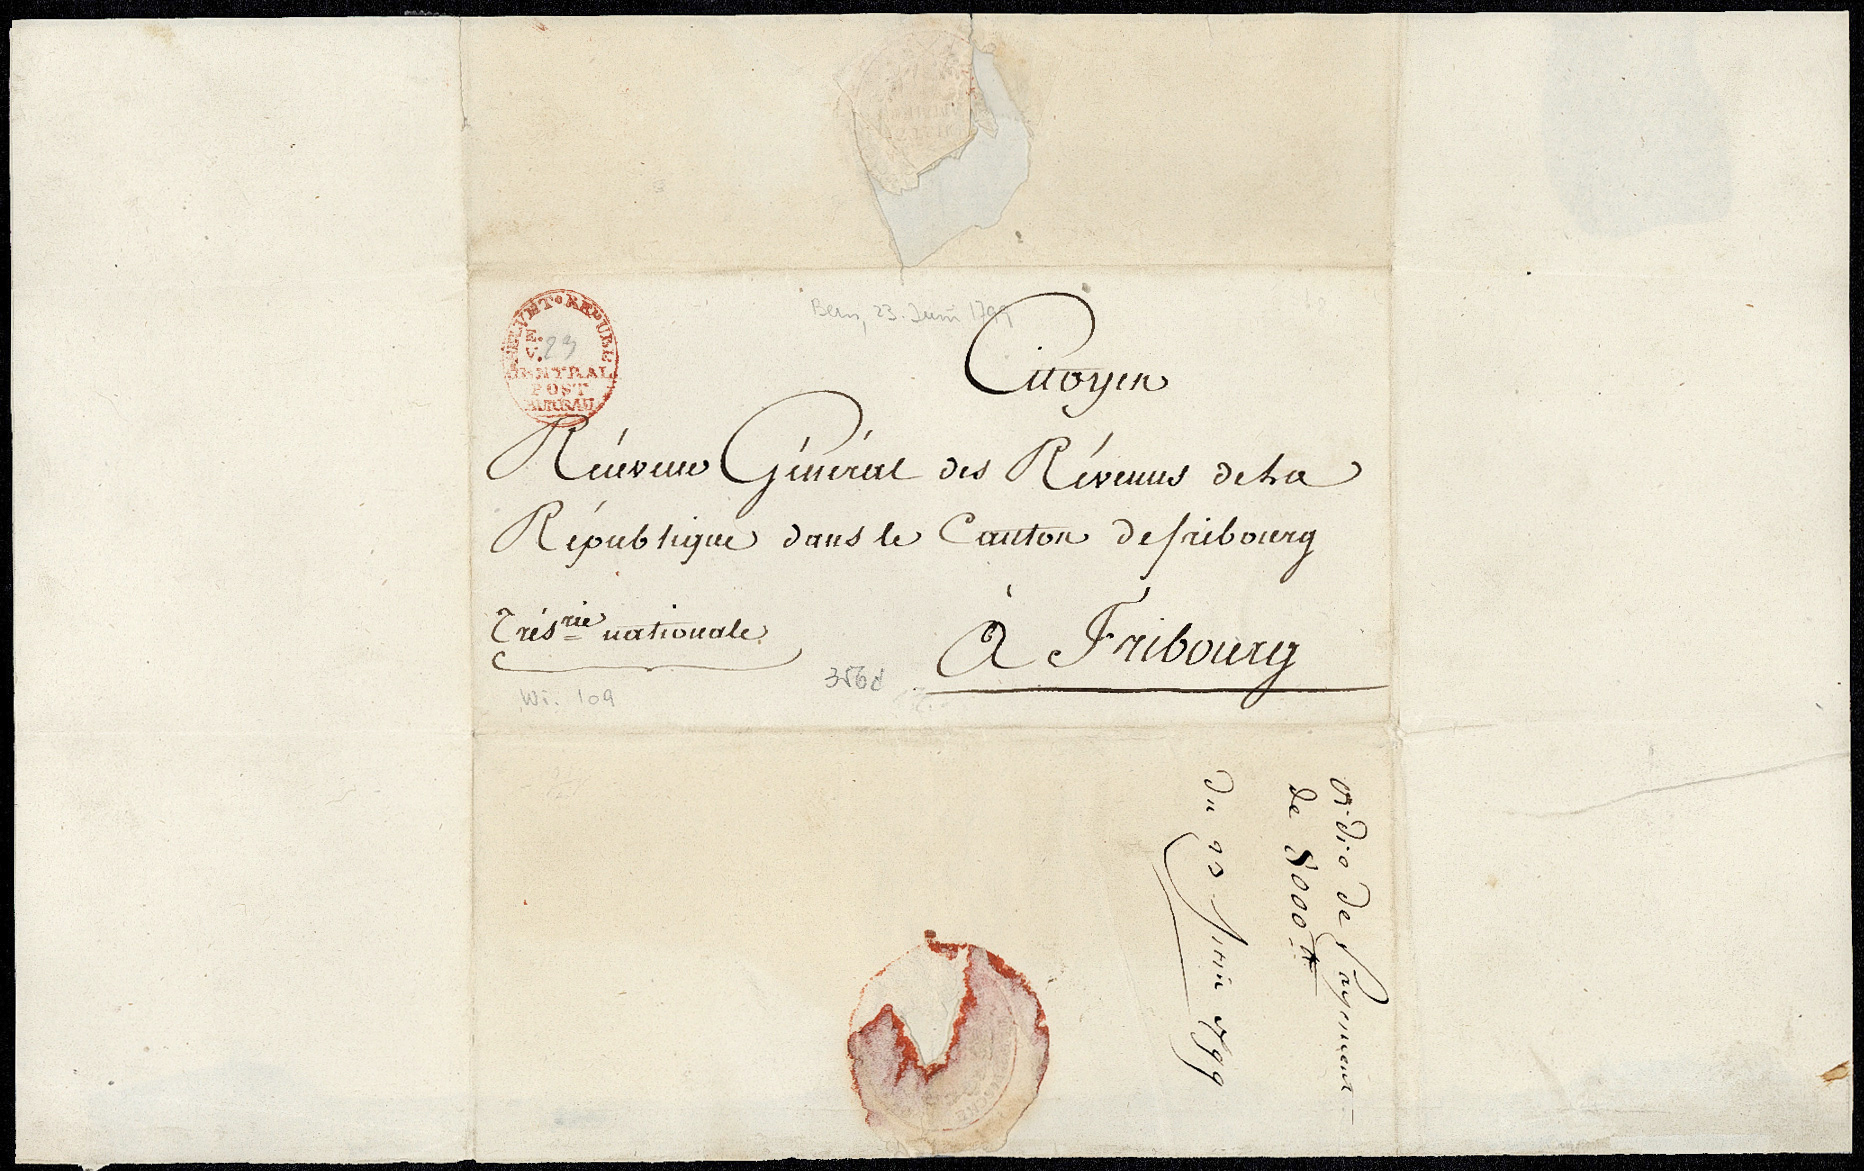 HELVET° REPUBL
E.
V. 23
CENTRAL
POST
BUREAU
Bern, 23. Juni 1799
Citoyen
Réceveur Général des Révenus de La
République dans le Canton de fribourg
Trésrie nationale
à Fribourg
356d
Wi. 109
ordre de Payement
de 8000 ₶
du 23 Juin 1799